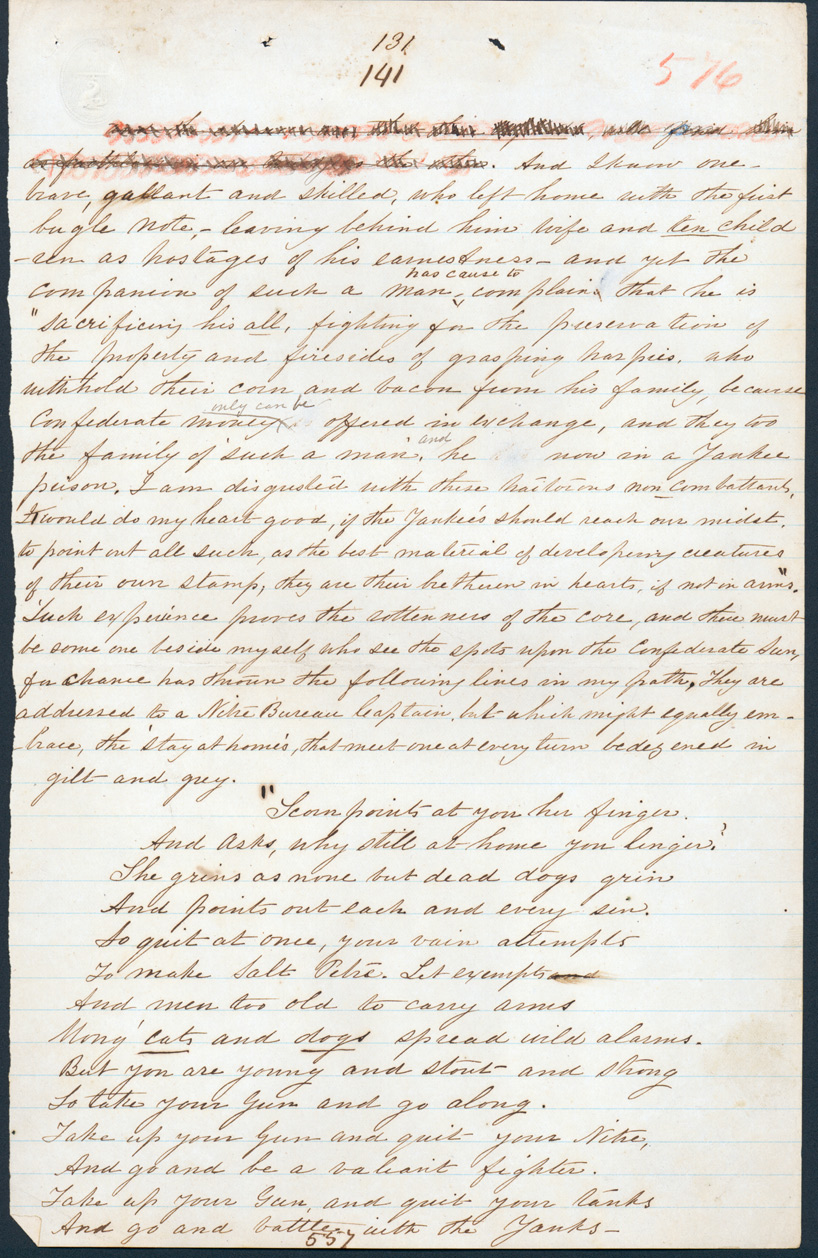 131
141
576
will find their
. And I know one –
brave, gallant and skilled, who left home with the first
bugle note, – leaving behind him wife and ten child
-ren as hostages of his earnestness – and yet the
has cause to
companion of such a man, complain that he is
"sacrificing his all, fighting for the preservation of
the property and firesides of grasping harpies, who
withhold their corn and bacon from his family, because
only can be
Confederate money offered in exchange, and they too
and
the family of 'such a man', he now in a Yankee
prison. I am disgusted with these traitorous non combattants,
It would do my heart good, if the Yankee's should reach our midst,
to point out all such, as the best material of developing creatures
of their own stamp; they are their bretheren in hearts, if not in arms".
Such experience proves the rottenness of the core, and there must
be some one beside myself who see the spots upon the Confederate Sun,
for chance has thrown the following lines in my path, They are
addressed to a Nitre Bureau Captain, but which might equally em-
brace, the 'stay at home's, that meet one at every turn bedezened in
gilt and grey.
"Scorn points at you her finger.
And asks, why still at home you linger?
She grins as none but dead dogs grin
And points out each and every sin.
So quit at once, your vain attempts
To make Salt Petre. Let exempts and
And men too old to carry arms
Mong' cats and dogs spread wild alarms.
But you are young and stout and strong
So take your Gun and go along.
Take up your Gun and quit your Nitre,
And go and be a valiant fighter.
Take up your Gun, and quit your tanks
And go and battle with the Yanks –
557